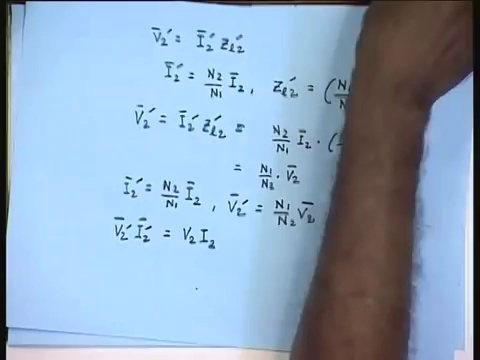 V̄₂′ = Ī₂′ Z̄ₗ₂′
Ī₂′ = N₂/N₁ Ī₂ , Z̄ₗ₂′ = (N₁/N
V̄₂′ = Ī₂′ Z̄ₗ₂′ = N₂/N₁ Ī₂ · (
= N₁/N₂ · V̄₂
Ī₂′ = N₂/N₁ Ī₂ , V̄₂′ = N₁/N₂ V̄₂
V̄₂′ Ī₂′ = V₂ I₂